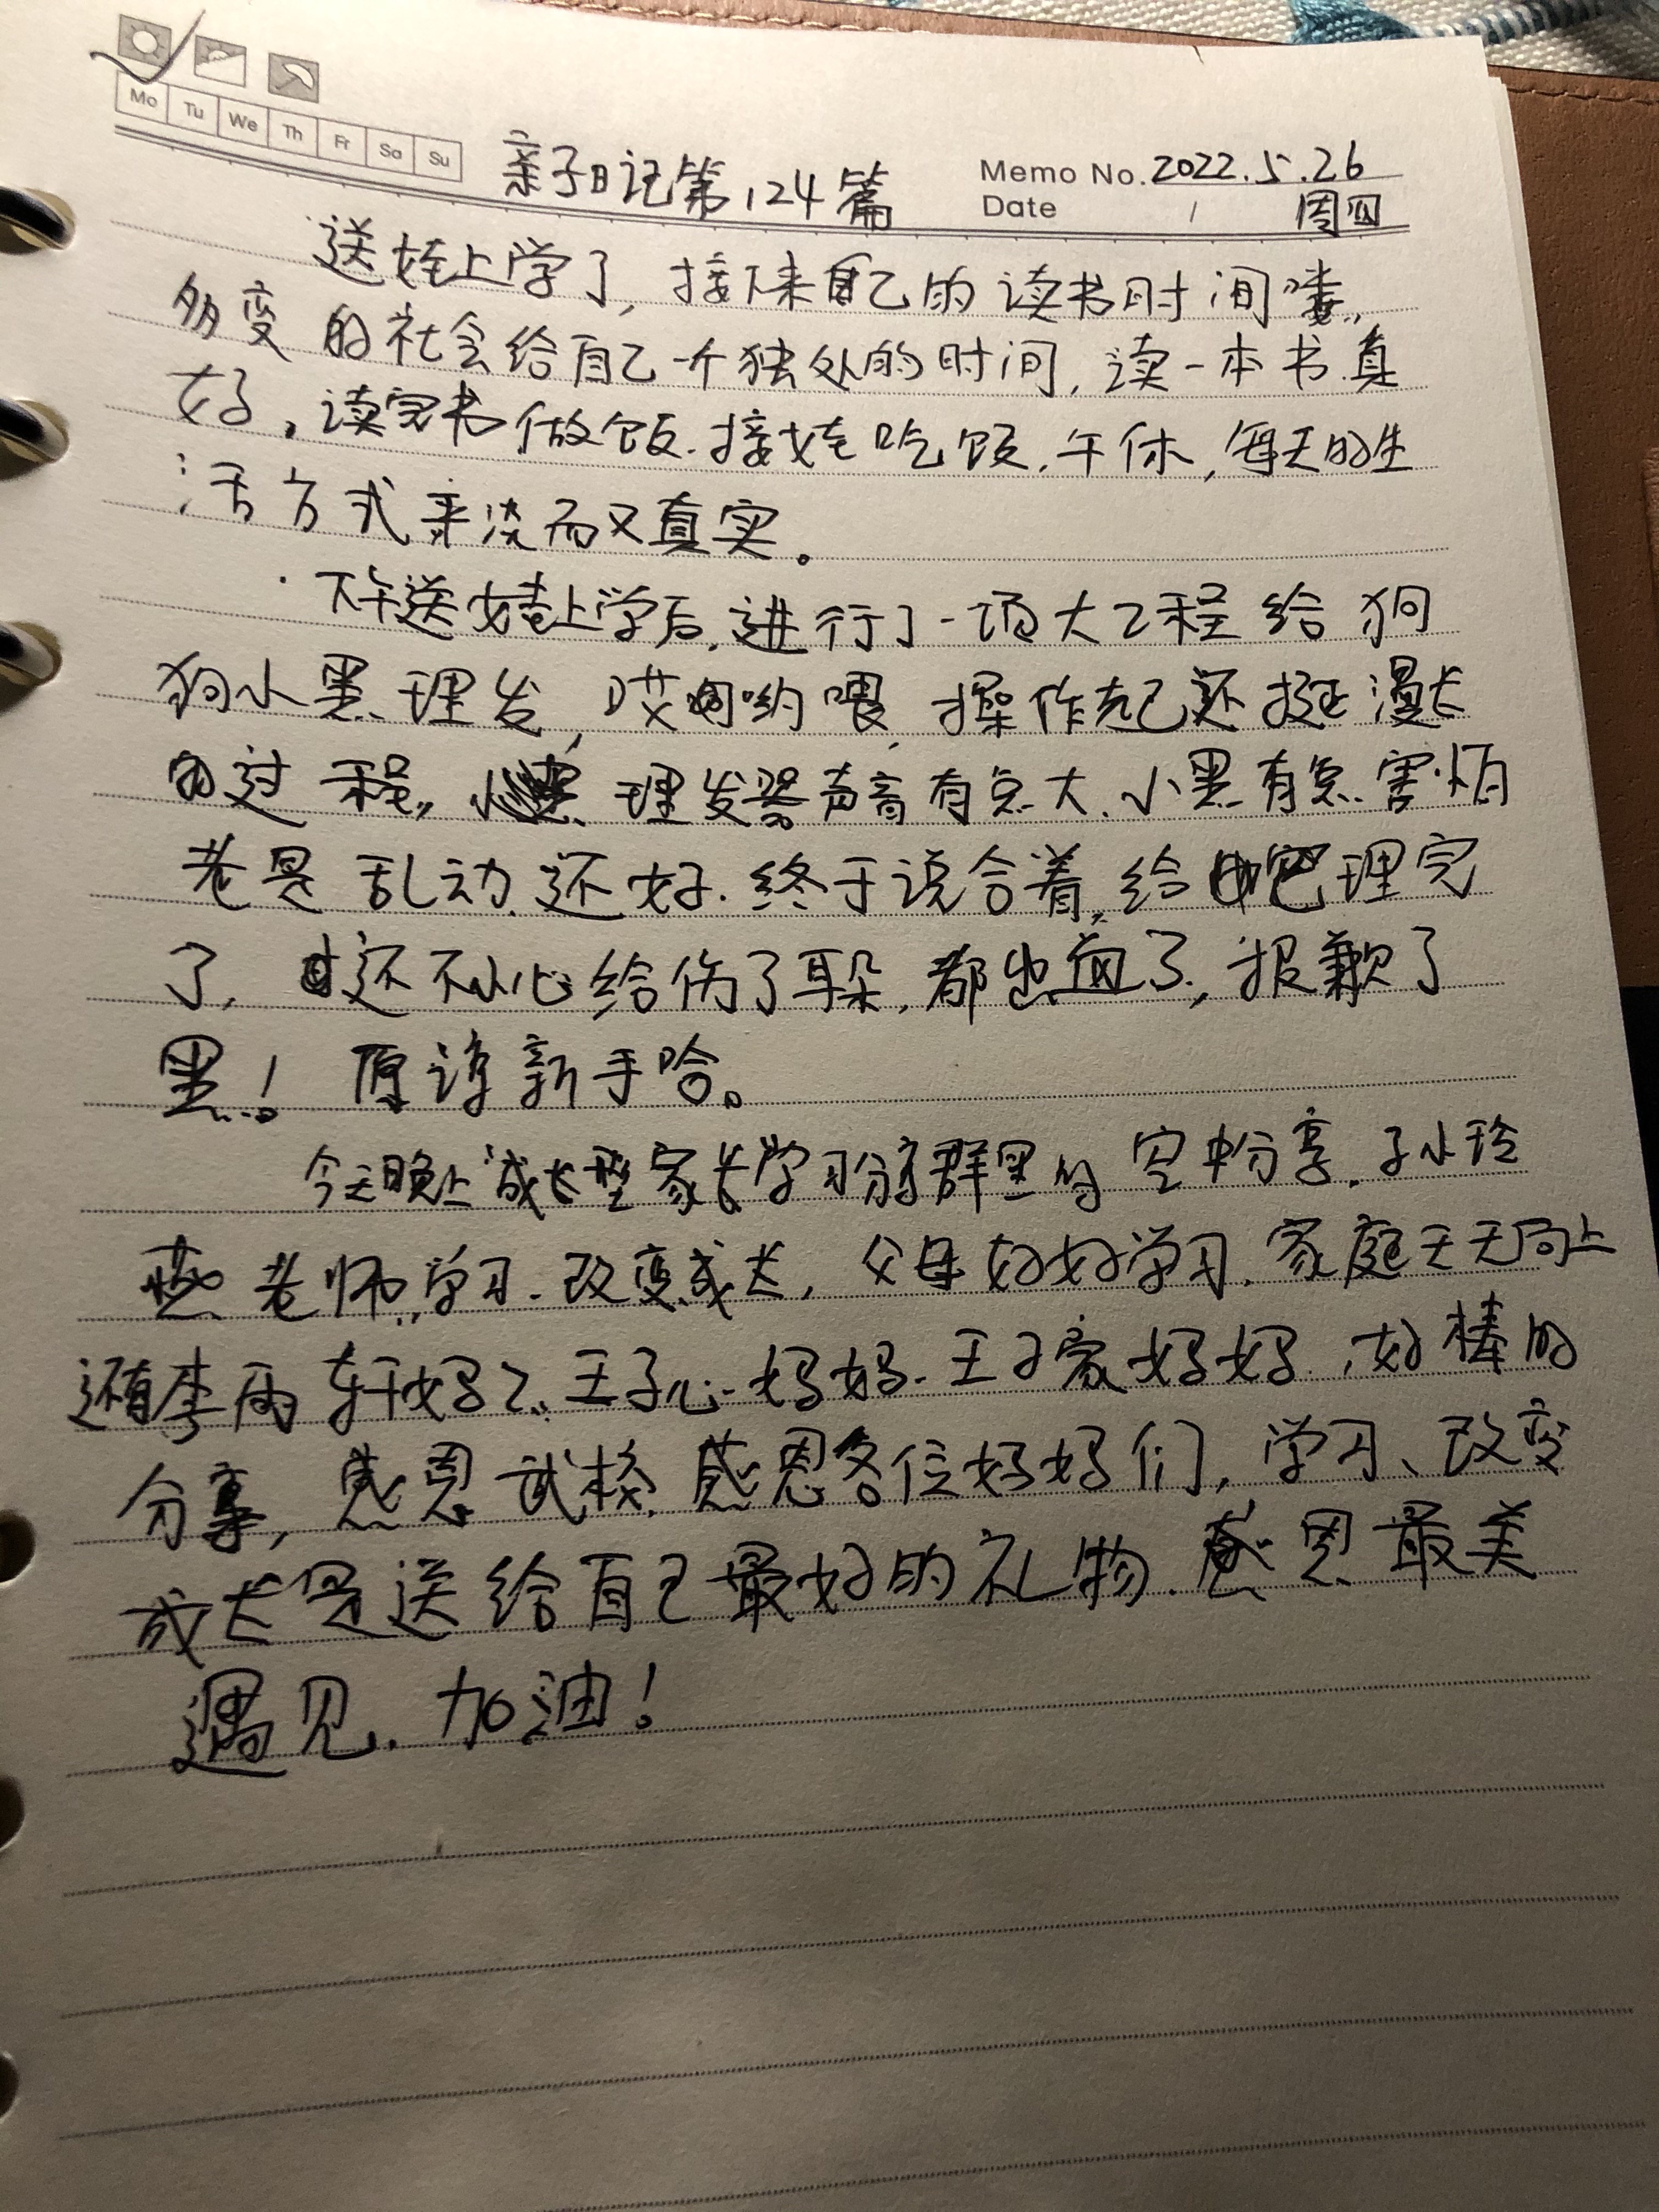 Mo Tu We Th Fr Sa Su
亲子日记第124篇
Memo No. 2022.5.26
Date / 周四
送娃上学了,接下来自己的读书时间喽,
多变的社会给自己一个独处的时间,读一本书真
好。读完书做饭.接娃吃饭.午休,每天的生
活方式平淡而又真实。
下午送娃上学后,进行了一项大工程给狗
狗小黑理发,哎呦喂,操作起还挺漫长
的过程,理发器声音有点大.小黑有点害怕
老是乱动.还好.终于说合着,给它理完
了,还不小心给伤了耳朵,都出血了,报歉了
黑!原谅新手哈。
今天晚上成长型家长学习群里的空中分享.孙小玲
燕老师,学习.改变成长,父母好好学习.家庭天天向上
还有李雨轩妈妈、王子心妈妈.王子家妈妈.好棒的
分享,感恩武校.感恩各位妈妈们,学习、改变
成长是送给自己最好的礼物.感恩最美
遇见.加油!